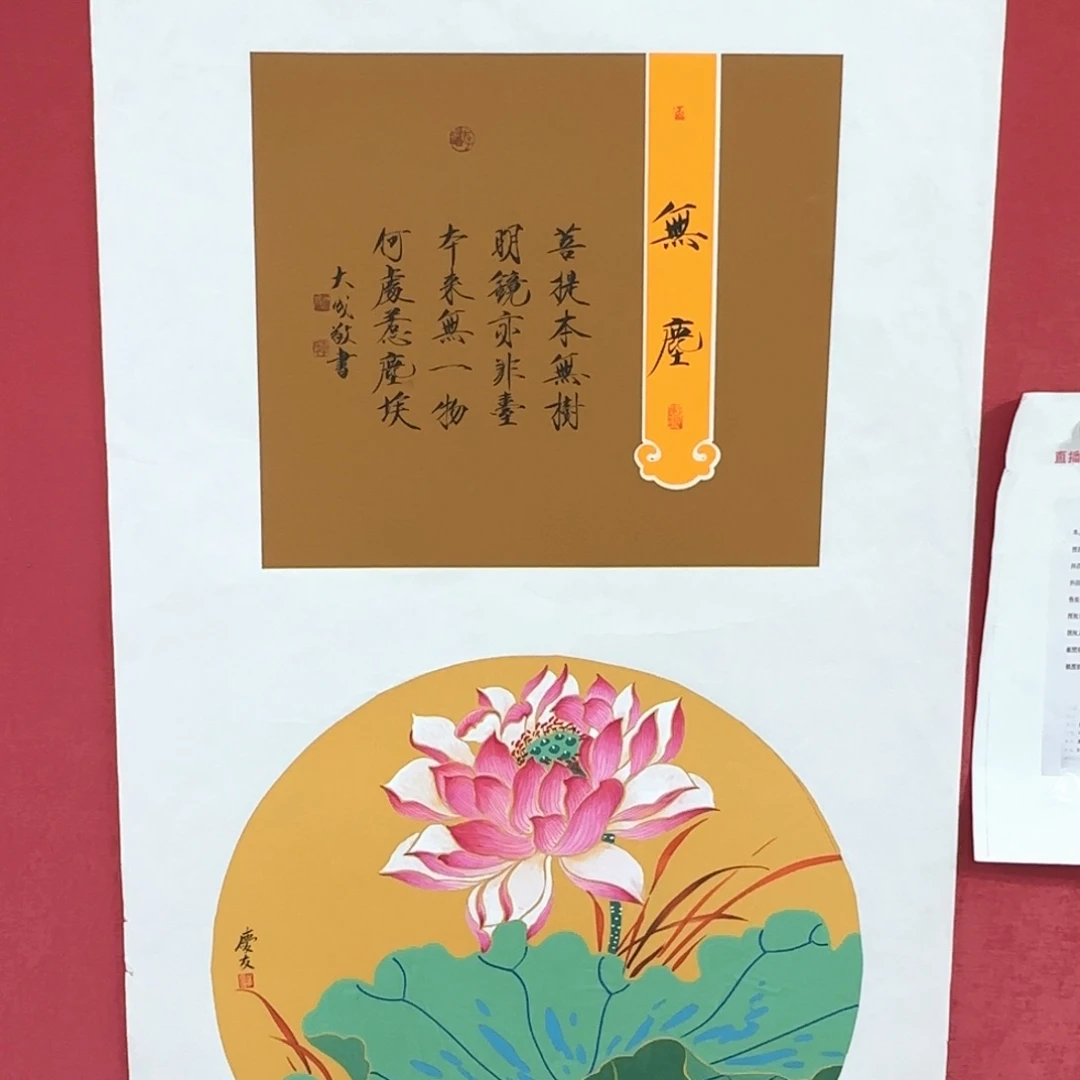 無塵
菩提本無樹
明鏡亦非臺
本来無一物
何處惹塵埃
大成敬書
慶友
直播